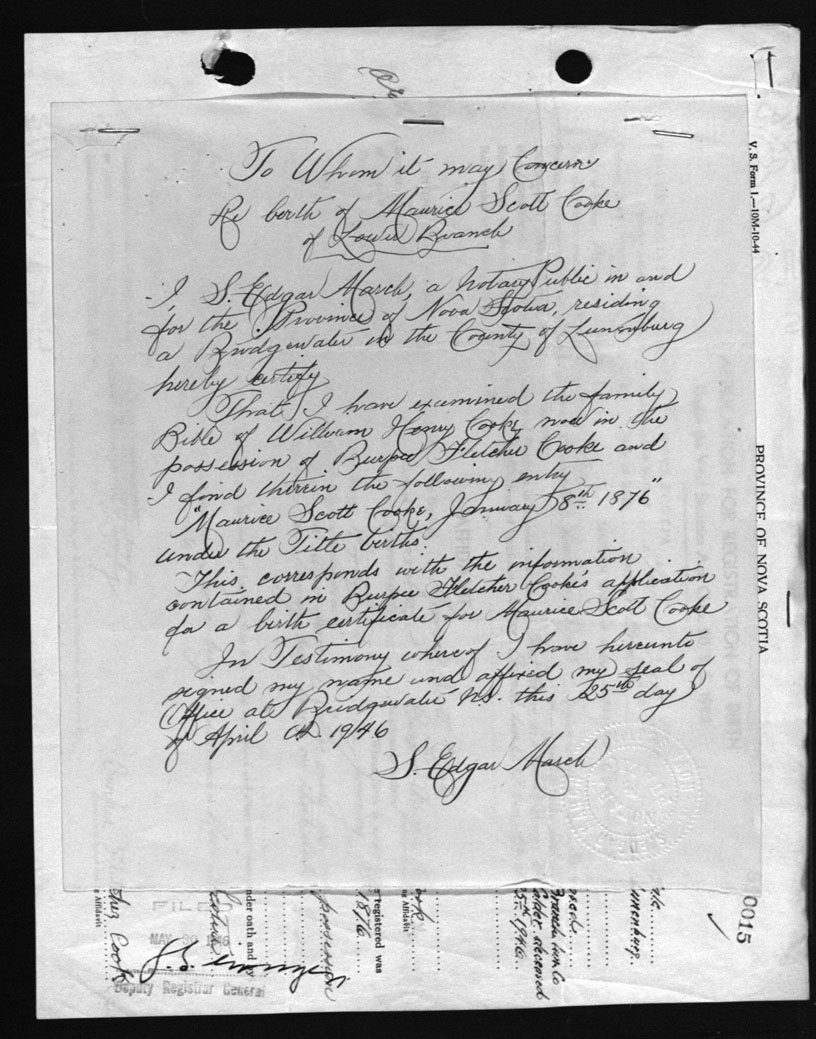 To Whom it may Concern
Re birth of Maurice Scott Cooke
of Lower Branch
I S. Edgar March, a Notary Public in and
for the Province of Nova Scotia, residing
a Bridgewater in the County of Lunenburg
hereby certify
That I have examined the family
Bible of William Henry Cooke, now in the
possession of Burpee Fletcher Cooke and
I find therein the following entry
"Maurice Scott Cooke, January 8th 1876"
under the Title births.
This corresponds with the information
contained in Burpee Fletcher Cooke's application
for a birth certificate for Maurice Scott Cooke
In Testimony whereof I have hereunto
signed my name and affixed my seal of
Office at Bridgewater N.S. this 25th day
of April 1946
S. Edgar March
V. S. Form 1.—10M-10-44
PROVINCE OF NOVA SCOTIA
0015
Lunenburg
deceased
25th 1946
e registered was
1876
nder oath and
Affidavit
Cook
FILED
MAY 1946
Deputy Registrar General